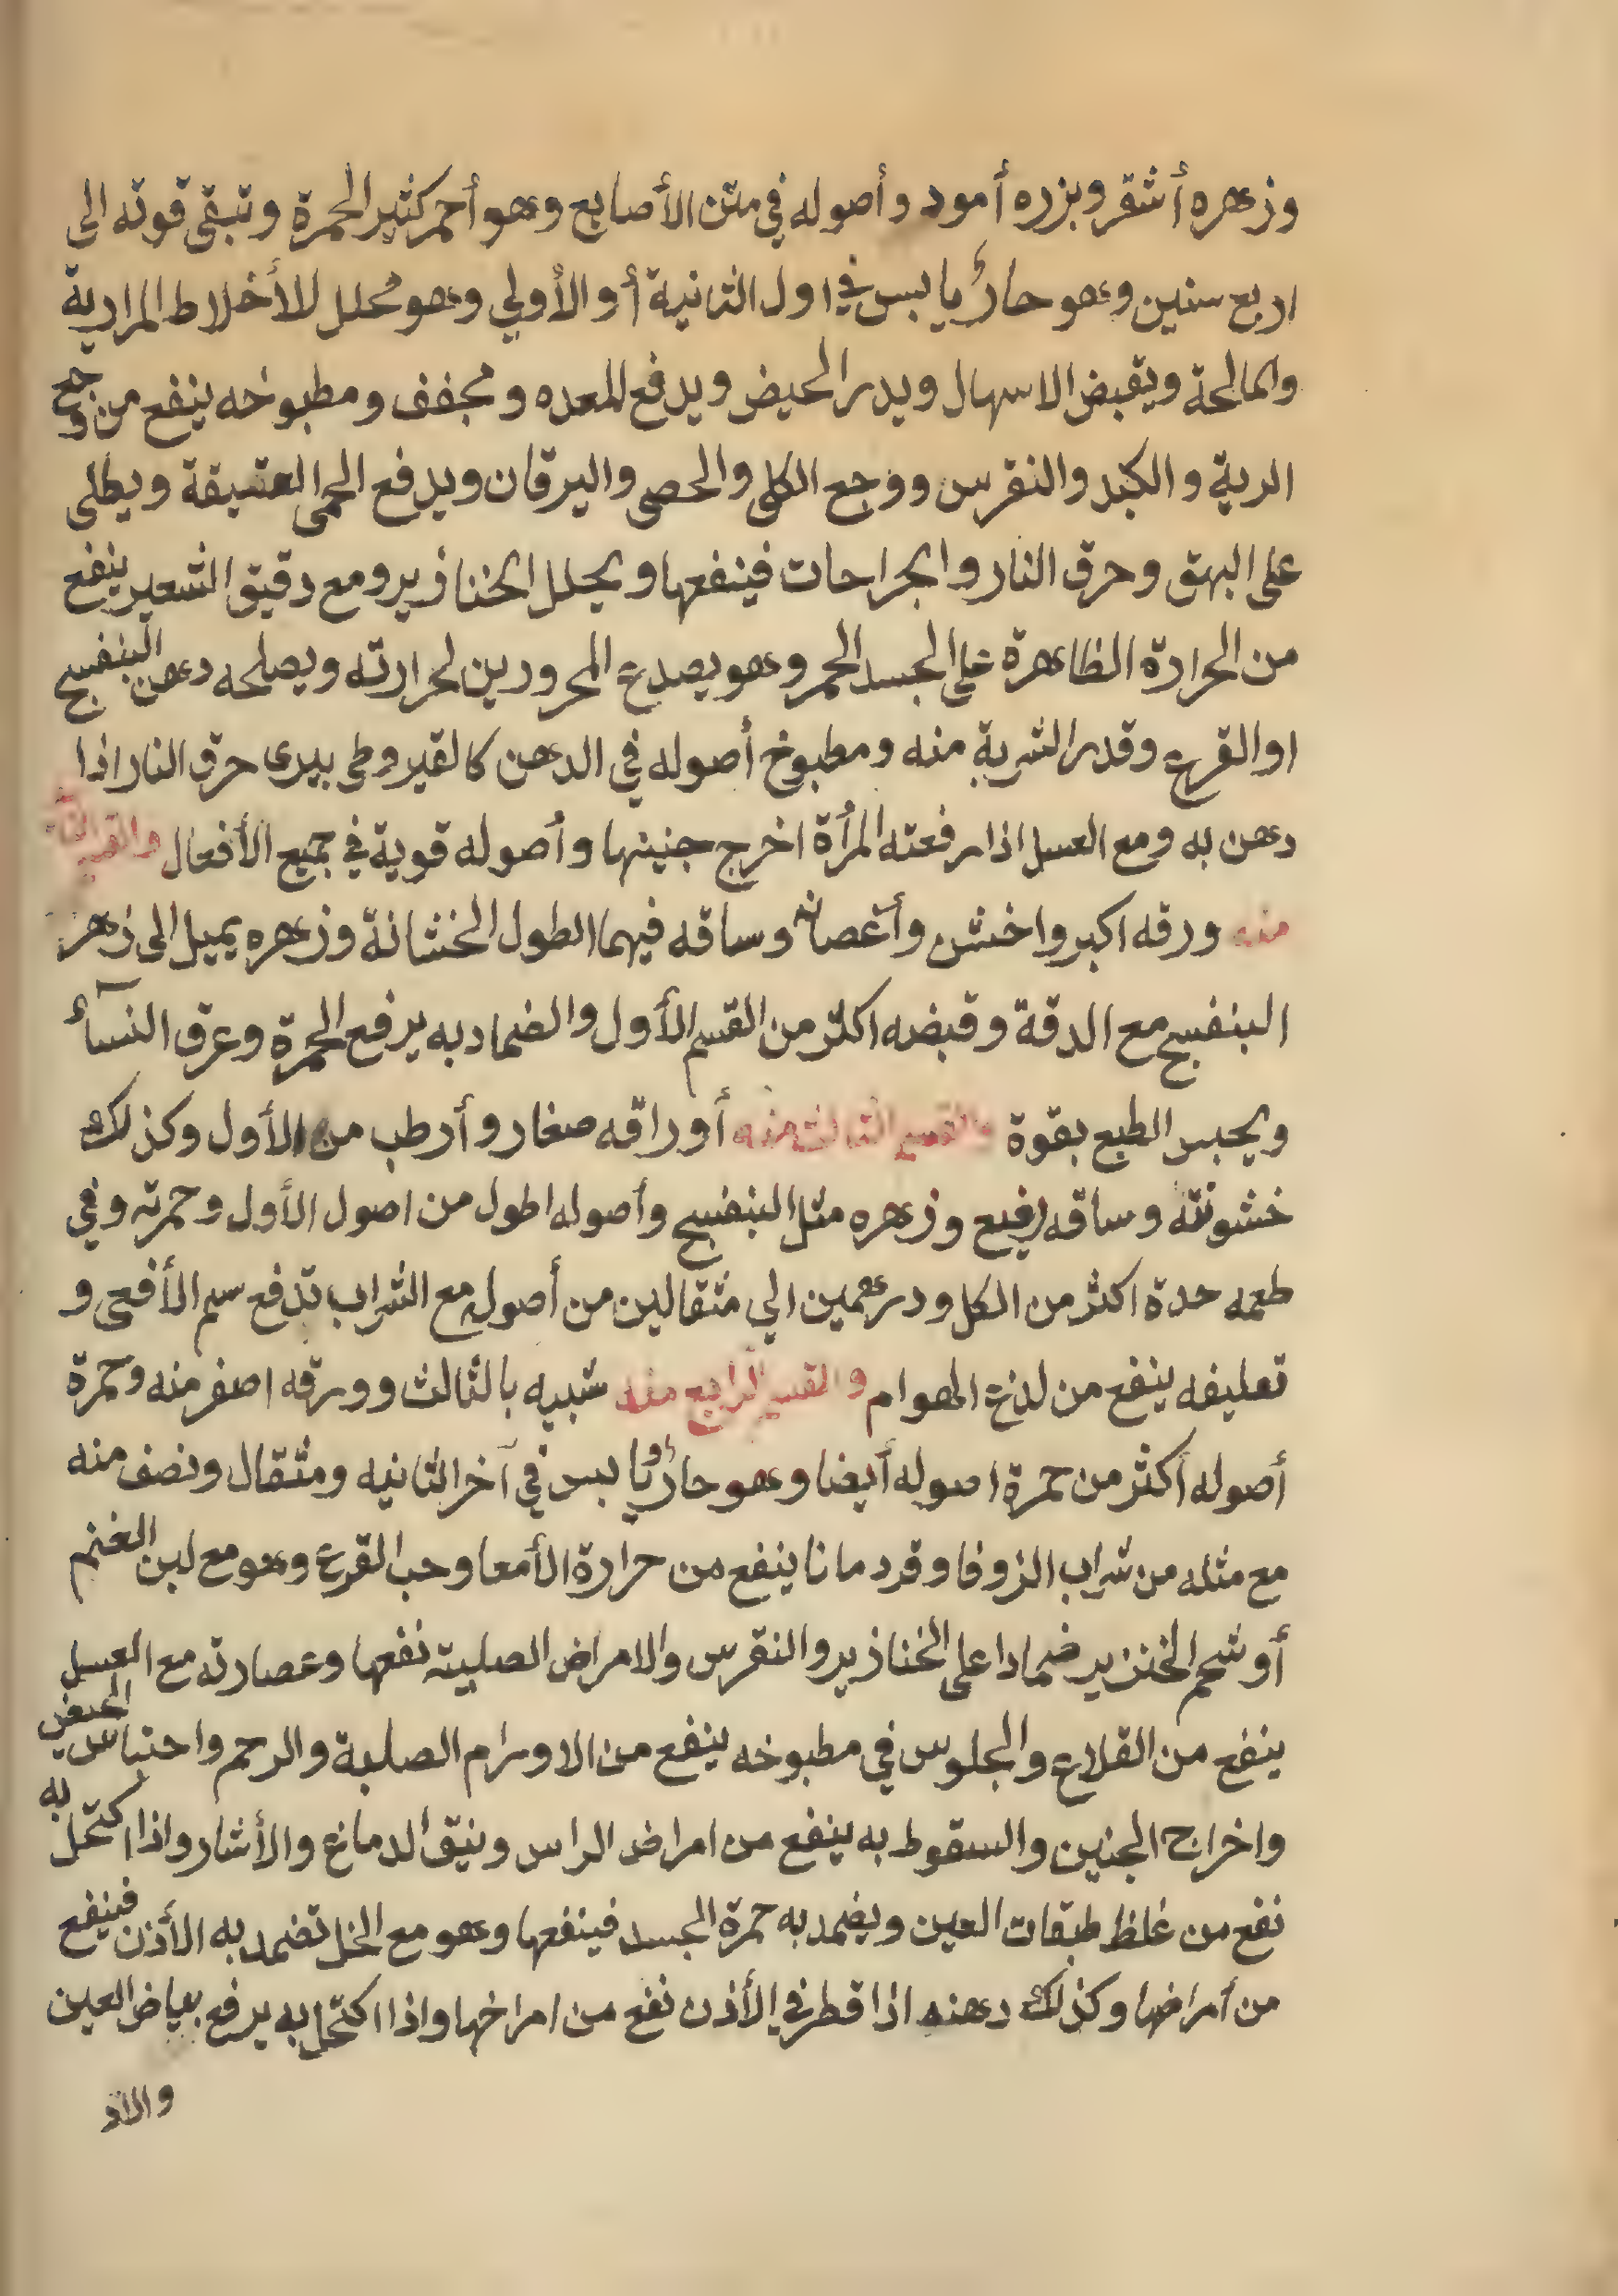 وزهره أشقر وبزره أسود وأصوله في متن الأصابع وهو أحمر كثير الحمرة وتبقى قوته الى
اربع سنين وهو حارٌ يابس في اول الثانية أو الأولي وهو محلل للأخلاط المرارية
والمالحة ويقبض الاسهال ويدر الحيض ويدفع للمعده ومجفف ومطبوخه ينفع من وجع
الرية والكبد والنقرس ووجع الكلى والحصى واليرقان ويدفع الحمى العتيقة ويطلى
على البهق وحرق النار والجراحات فينفعها ويحلل الخنازير ومع دقيق الشعير ينفع
من الحرارة الظاهرة على الجسد الحمر وهو يصدع المحرورين لحرارته ويصلحه دهن البنفسج
او القرع وقدر الشربة منه ومطبوخ أصوله في الدهن كالقيروطى يبرى حرق النار اذا
دهن به ومع العسل اذا رفعته المرأة اخرج جنينها وأصوله قوية في جميع الأفعال والقسم الثاني
منه ورقه اكبر واخشن وأغصانه وساقه فيهما الطول الخشانة وزهره يميل الى زهر
البنفسج مع الدقة وقبضه اكثر من القسم الأول والضماد به يرفع الحمرة وعرق النسآء
ويحبس الطبع بقوة والقسم الثالث منه أوراقه صغار وأرطب من الأول وكذلك
خشونته وساقه رفيع وزهره مثل البنفسج وأصوله اطول من اصول الأول وحمرته وفي
طعمه حدة اكثر من الكل ودرهمين الي مثقالين من أصوله مع الشراب تدفع سم الأفعى و
تعليفه ينفع من لدغ الهوام والقسم الرابع منه شبيه بالثالث وورقه اصفر منه وحمرة
أصوله أكثر من حمرة اصوله أيضا وهو حارٌ يابس في آخر الثانيه ومثقال ونصف منه
مع مثله من شراب الزوفا وقردمانا ينفع من حرارة الأمعا وحب القرع وهو مع لبن الغنم
أو شحم الخنزير ضمادا على الخنازير والنقرس والامراض الصلبية نفعها وعصارته مع العسل
ينفع من القلاع والجلوس في مطبوخه ينفع من الاورام الصلبة والرحم واحتباس الحيض
واخراج الجنين والسقوط به ينفع من امراض الراس وينقى الدماغ والأثار واذا اكتحل به
نفع من غلظ طبقات العين ويضمد به حمرة الجسد فينفعها وهو مع الخل تضمد به الأذن فينفع
من أمراضها وكذلك دهنه اذا قطر في الأذن نفع من امراضها واذا اكتحل به يرفع بياض العين